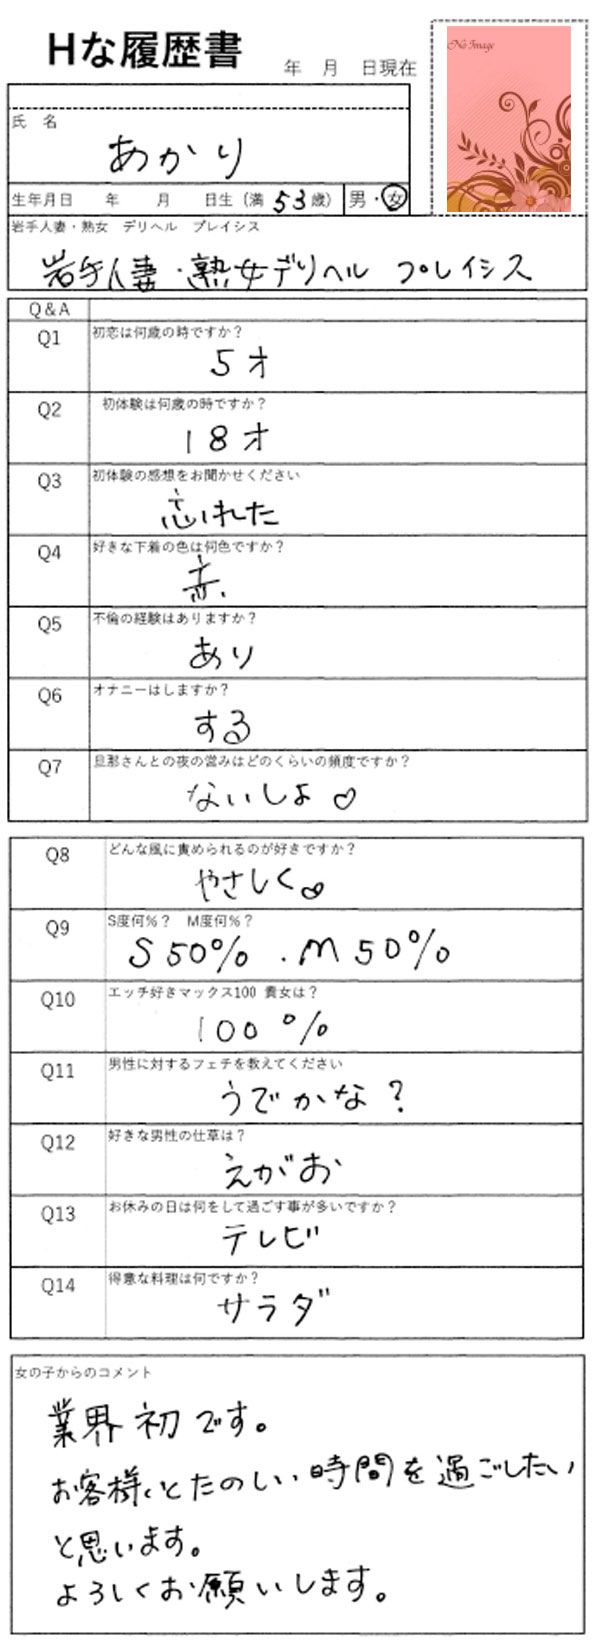 Hな履歴書
年 月 日現在
No Image
氏 名
あかり
生年月日 年 月 日生 (満 53 歳) 男・女
岩手人妻・熟女 デリヘル プレイシス
岩手人妻・熟女デリヘル プレイシス
Q&A
Q1 初恋は何歳の時ですか?
5才
Q2 初体験は何歳の時ですか?
18才
Q3 初体験の感想をお聞かせください
忘れた
Q4 好きな下着の色は何色ですか?
赤
Q5 不倫の経験はありますか?
あり
Q6 オナニーはしますか?
する
Q7 旦那さんとの夜の営みはどのくらいの頻度ですか?
ないしょ♡
Q8 どんな風に責められるのが好きですか?
やさしく
Q9 S度何%? M度何%?
S50%・M50%
Q10 エッチ好きマックス100 貴女は?
100%
Q11 男性に対するフェチを教えてください
うでかな?
Q12 好きな男性の仕草は?
えがお
Q13 お休みの日は何をして過ごす事が多いですか?
テレビ
Q14 得意な料理は何ですか?
サラダ
女の子からのコメント
業界初です。
お客様とたのしい時間を過ごしたい
と思います。
よろしくお願いします。